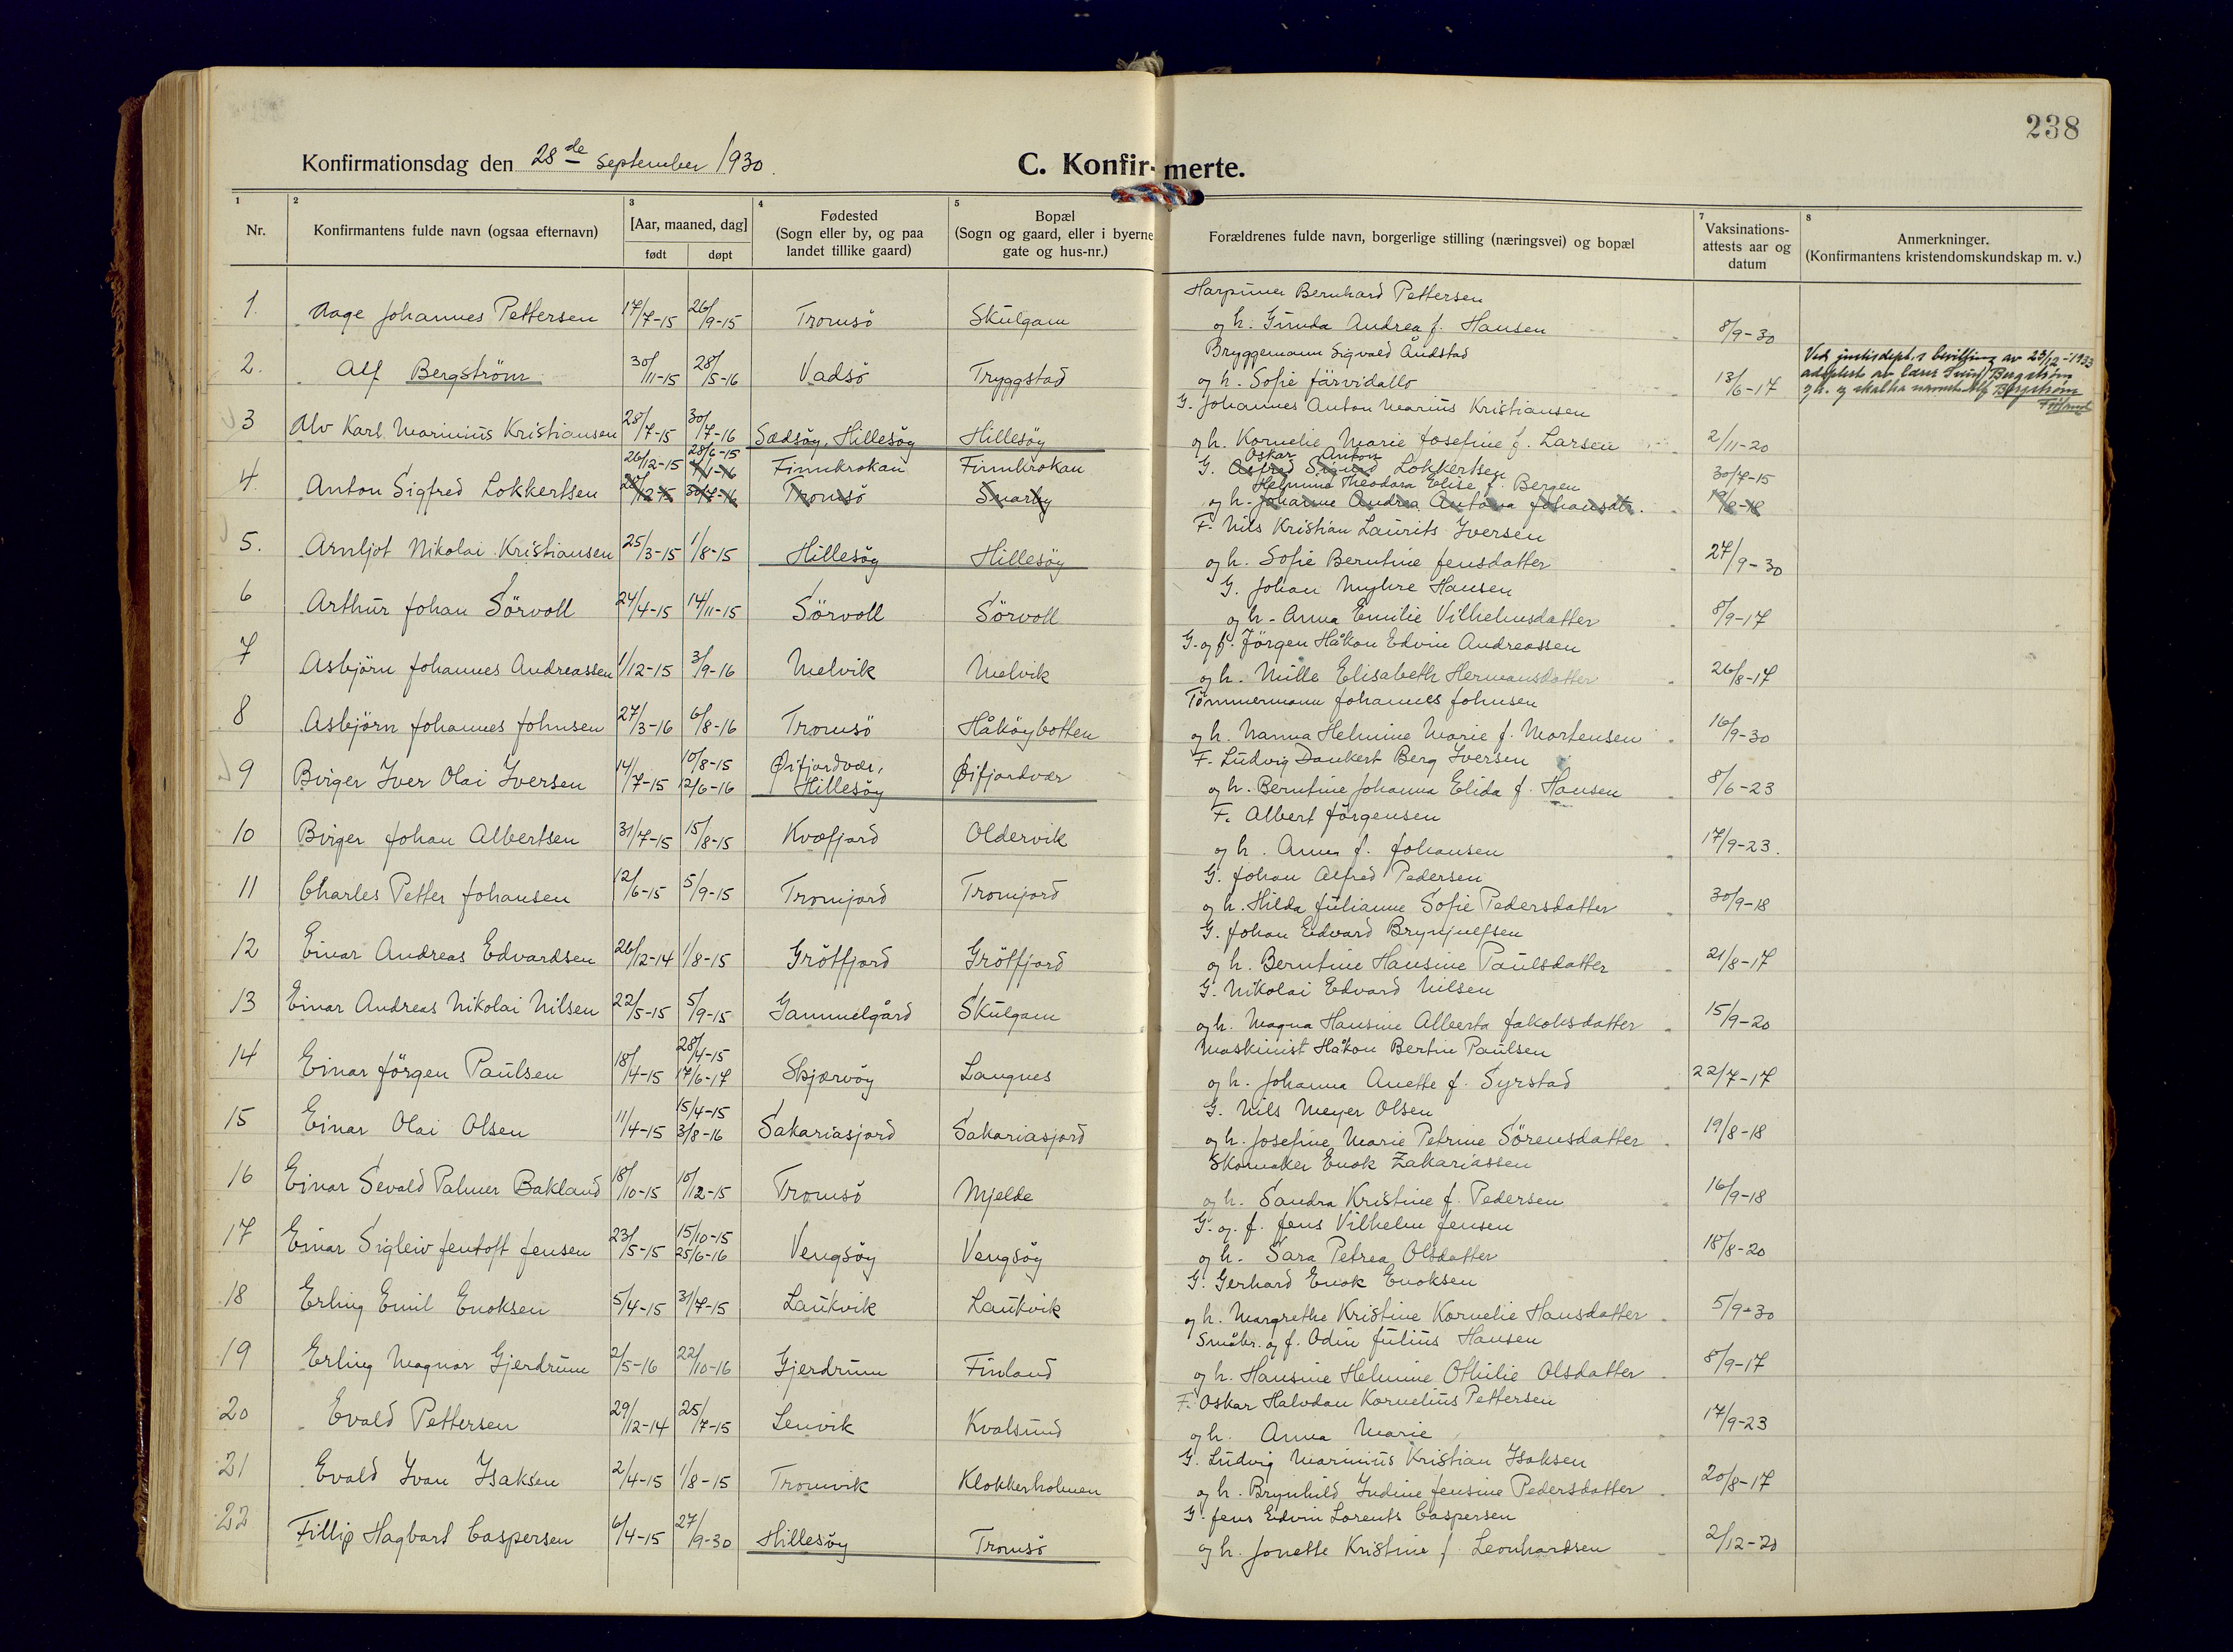 238
Konfirmationsdag den 28de September 1930.
C. Konfirmerte.
1 2 3 4 5 7 8
Nr. Konfirmantens fulde navn (ogsaa efternavn) [Aar, maaned, dag] født døpt Fødested (Sogn eller by, og paa landet tillike gaard) Bopæl (Sogn og gaard, eller i byerne gate og hus-nr.) Forældrenes fulde navn, borgerlige stilling (næringsvei) og bopæl Vaksinationsattests aar og datum Anmerkninger. (Konfirmantens kristendomskundskap m. v.)
Harpuner Bernhard Pettersen
1. Aage Johannes Pettersen 17/7-15 26/9-15 Tromsö Skulgam og h. Gunda Andrea f. Hansen 8/9-30
Bryggemann Sigvald Åndstad
2. Alf Bergström 30/11-15 28/5-16 Vadsö Tryggstad og h. Sofie Järvidallo 13/6-17 Ved justisdept.s bevilling av 23/12-1933
adoptert av Bergström
og h. og skal ha navnet Alf Bergström
G. Johannes Anton Marius Kristiansen
3 Alv Karl Marinius Kristiansen 28/7-15 30/7-16 Sædsöy, Hillesöy Hillesöy og h. Kornelie Marie Josefine f. Larsen 2/11-20
26/12-15 28/6-15 7/1-16 Finnkrokan Finnkrokan G. Oskar Anton Asfred Sigurd Lokkertsen 30/7-15
Helmine Theodora Elise f. Bergen
4 Anton Sigfred Lokkertsen 28/12-15 30/7-16 Tromsö Snarby og h. Johanne Andrea Antona Johansdtr.
F. Nils Kristian Laurits Iversen
5. Arnljot Nikolai Kristiansen 25/3-15 1/8-15 Hillesöy Hillesöy og h. Sofie Berntine Jensdatter 27/9-30
G. Johan Myhre Hansen
6 Arthur Johan Sörvoll 24/4-15 14/11-15 Sörvoll Sörvoll og h. Anna Emilie Vilhelmsdatter 8/9-17
G. og f. Jörgen Håkon Edvin Andreassen
7 Asbjörn Johannes Andreassen 1/12-15 3/9-16 Melvik Melvik og h. Mille Elisabeth Hermansdatter 26/8-17
Tömmermann Johannes Johnsen
8 Asbjörn Johannes Johnsen 27/3-16 6/8-16 Tromsö Håköybotten og h. Nanna Helmine Marie f. Mortensen 16/9-30
F. Ludvig Dankert Berg Iversen
9 Birger Iver Olai Iversen 14/7-15 10/8-15 12/6-16 Øifjordvær, Hillesöy Øifjordvær og h. Berntine Johanna Elida f. Hansen 8/6-23
F. Albert Jörgensen
10 Birger Johan Albertsen 31/7-15 15/8-15 Kvæfjord Oldervik og h. Anna f. Johansen 17/9-23.
G. Johan Alfred Pedersen
11 Charles Petter Johansen 12/6-15 5/9-15 Tromjord Tromjord og h. Hilda Julianne Sofie Pedersdatter 30/9-18
G. Johan Edvard Brynjulfsen
12 Einar Andreas Edvardsen 26/12-14 1/8-15 Grötfjord Grötfjord og h. Berntine Hansine Paulsdatter 21/8-17
G. Nikolai Edvard Nilsen
13 Einar Andreas Nikolai Nilsen 22/5-15 5/9-15 Gammelgård Skulgam og h. Magna Hansine Alberta Jakobsdatter 15/9-20
Maskinist Håkon Bertin Paulsen
14 Einar Jörgen Paulsen 18/4-15 28/4-15 17/6-17 Skjærvöy Langnes og h. Johanna Anette f. Syrstad 22/7-17
G. Nils Meyer Olsen
15 Einar Olai Olsen 11/4-15 15/4-15 3/8-16 Sakariasjord Sakariasjord og h. Josefine Marie Petrine Sörensdatter 19/8-18
Skomaker Enok Zakariassen
16 Einar Sevald Palmer Bakland 18/10-15 10/12-15 Tromsö Mjelde og h. Sandra Kristine f. Pedersen 16/9-18
G. og f. Jens Vilhelm Jensen
17 Einar Sigleiv Jentoft Jensen 23/5-15 15/10-15 25/6-16 Vengsöy Vengsöy og h. Sara Petrea Olsdatter 18/8-20
G. Gerhard Enok Enoksen
18 Erling Emil Enoksen 5/4-15 31/7-15 Laukvik Laukvik og h. Margrethe Kristine Kornelie Hansdatter 5/9-30
Småbr. og f. Odin Julius Hansen
19 Erling Magnar Gjerdrum 2/5-16 22/10-16 Gjerdrum Finland og h. Hansine Helmine Othilie Olsdatter 8/9-17
F. Oskar Halvdan Kornelius Pettersen
20 Evald Pettersen 29/12-14 25/7-15 Lenvik Kvalsund og h. Anna Marie 17/9-23
G. Ludvig Marinius Kristian Isaksen
21 Evald Ivan Isaksen 2/4-15 1/8-15 Tromvik Klokkerholmen og h. Brynhild Indine Jensine Pedersdatter 20/8-17
G. Jens Edvin Lorents Caspersen
22 Fillip Hagbart Caspersen 6/4-15 27/9-30 Hillesöy Tromsö og h. Jonette Kristine f. Leonhardsen 2/12-20